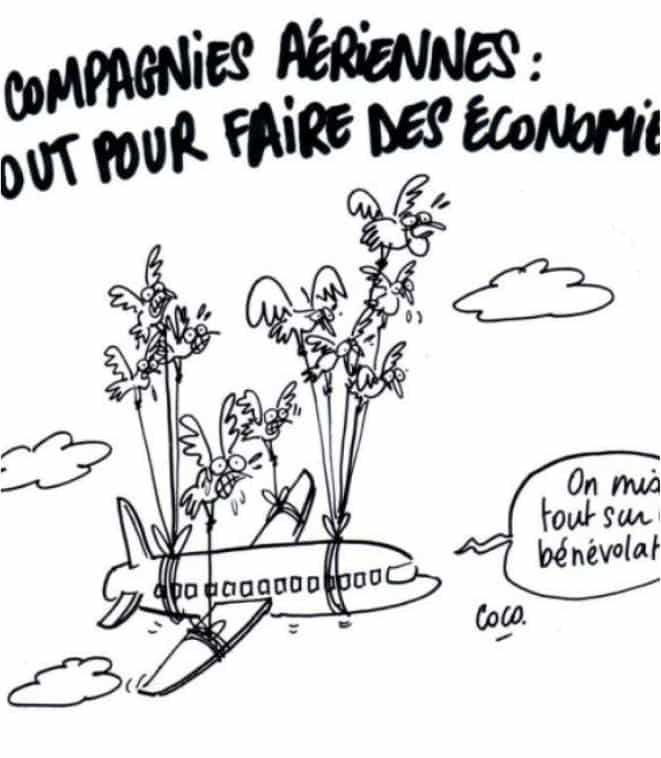 COMPAGNIES AÉRIENNES :
OUT POUR FAIRE DES ÉCONOMIE
On mis
tout sur
bénévolat
COCO.